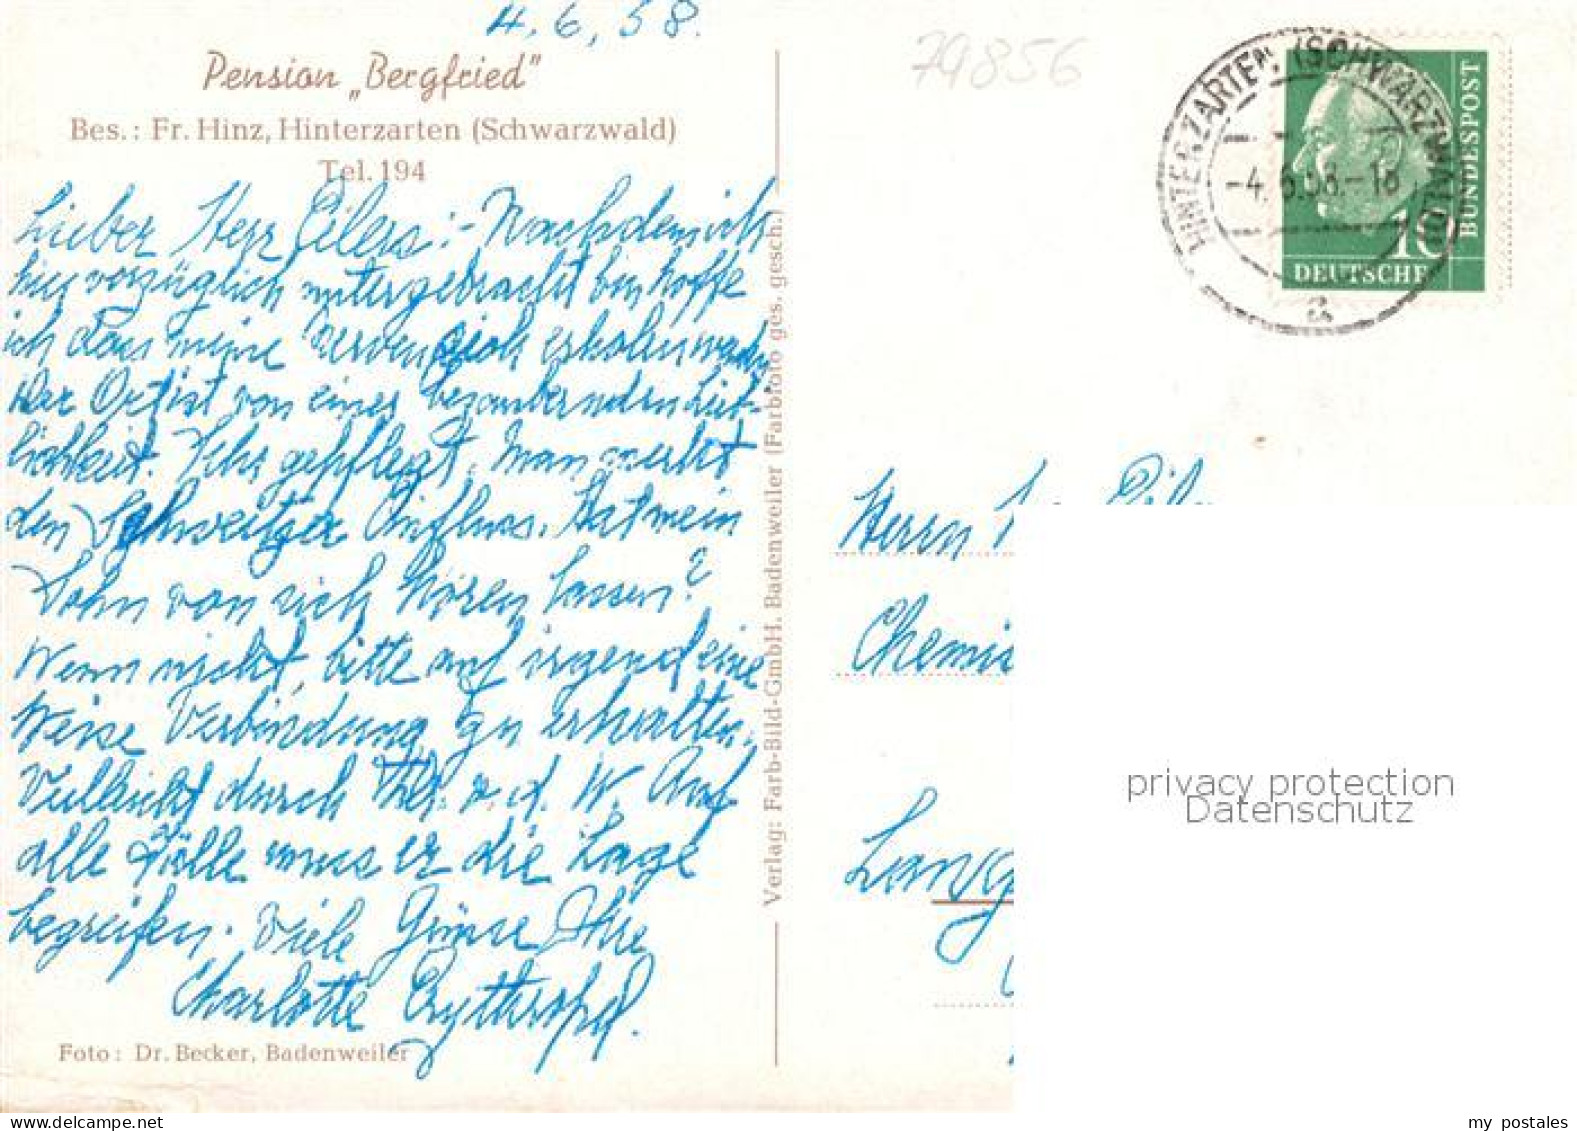 4.6.58.
Pension „Bergfried"
Bes.: Fr. Hinz, Hinterzarten (Schwarzwald)
Tel. 194
Lieber Herr Eilers:- Nachdem ich
hier vorzüglich untergebracht bin hoffe
ich dass meine Nerven sich erholen werden.
Der Ort ist von einer bezaubernden Lieb-
lichkeit. Sehr gepflegt. Man merkt
den Schweitzer Einfluss. Hat mein
Sohn von sich hören lassen?
Wenn nicht, bitte auf irgend eine
Weise Verbindung zu erhalten.
Vielleicht durch v. d. W. Auf
alle Fälle muss er die Lage
begreifen. Viele Grüsse, Ihre
Charlotte Erythropel.
Foto: Dr. Becker, Badenweiler
Verlag: Farb-Bild-GmbH. Badenweiler (Farbfoto ges. gesch.)
79856
HINTERZARTEN (SCHWARZWALD)
-4.6.58.-18
a
DEUTSCHE
BUNDESPOST
10
Herrn
Chemi
Lang
privacy protection
Datenschutz
my postales